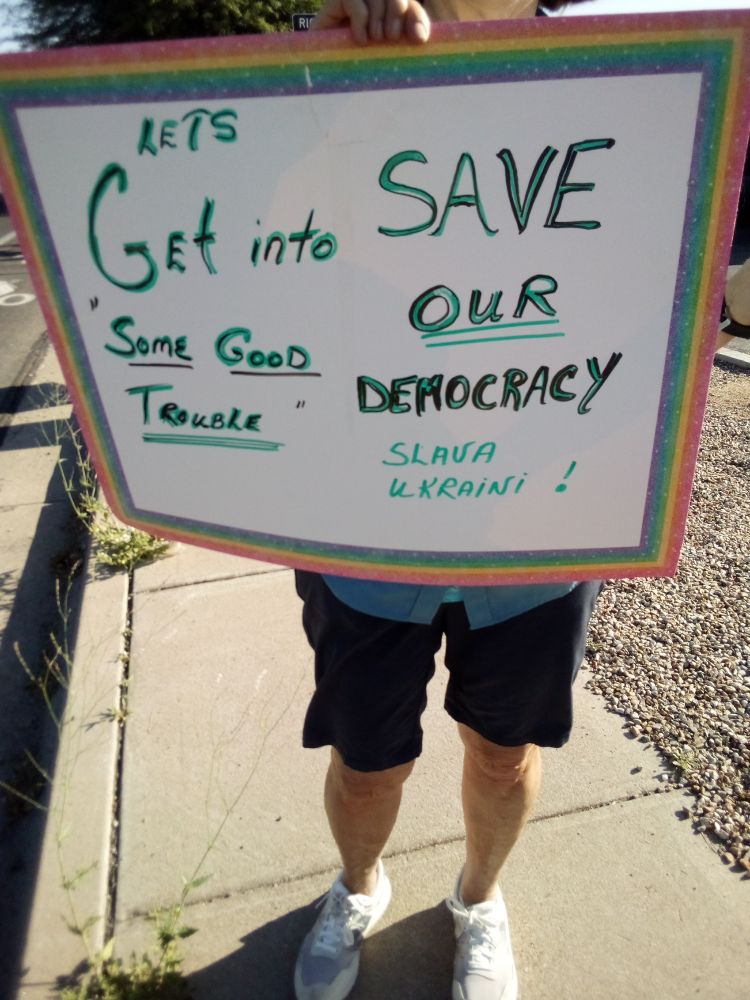 LETS
Get into
"SOME GOOD
TROUBLE"
SAVE
OUR
DEMOCRACY
SLAVA
UKRAINI !